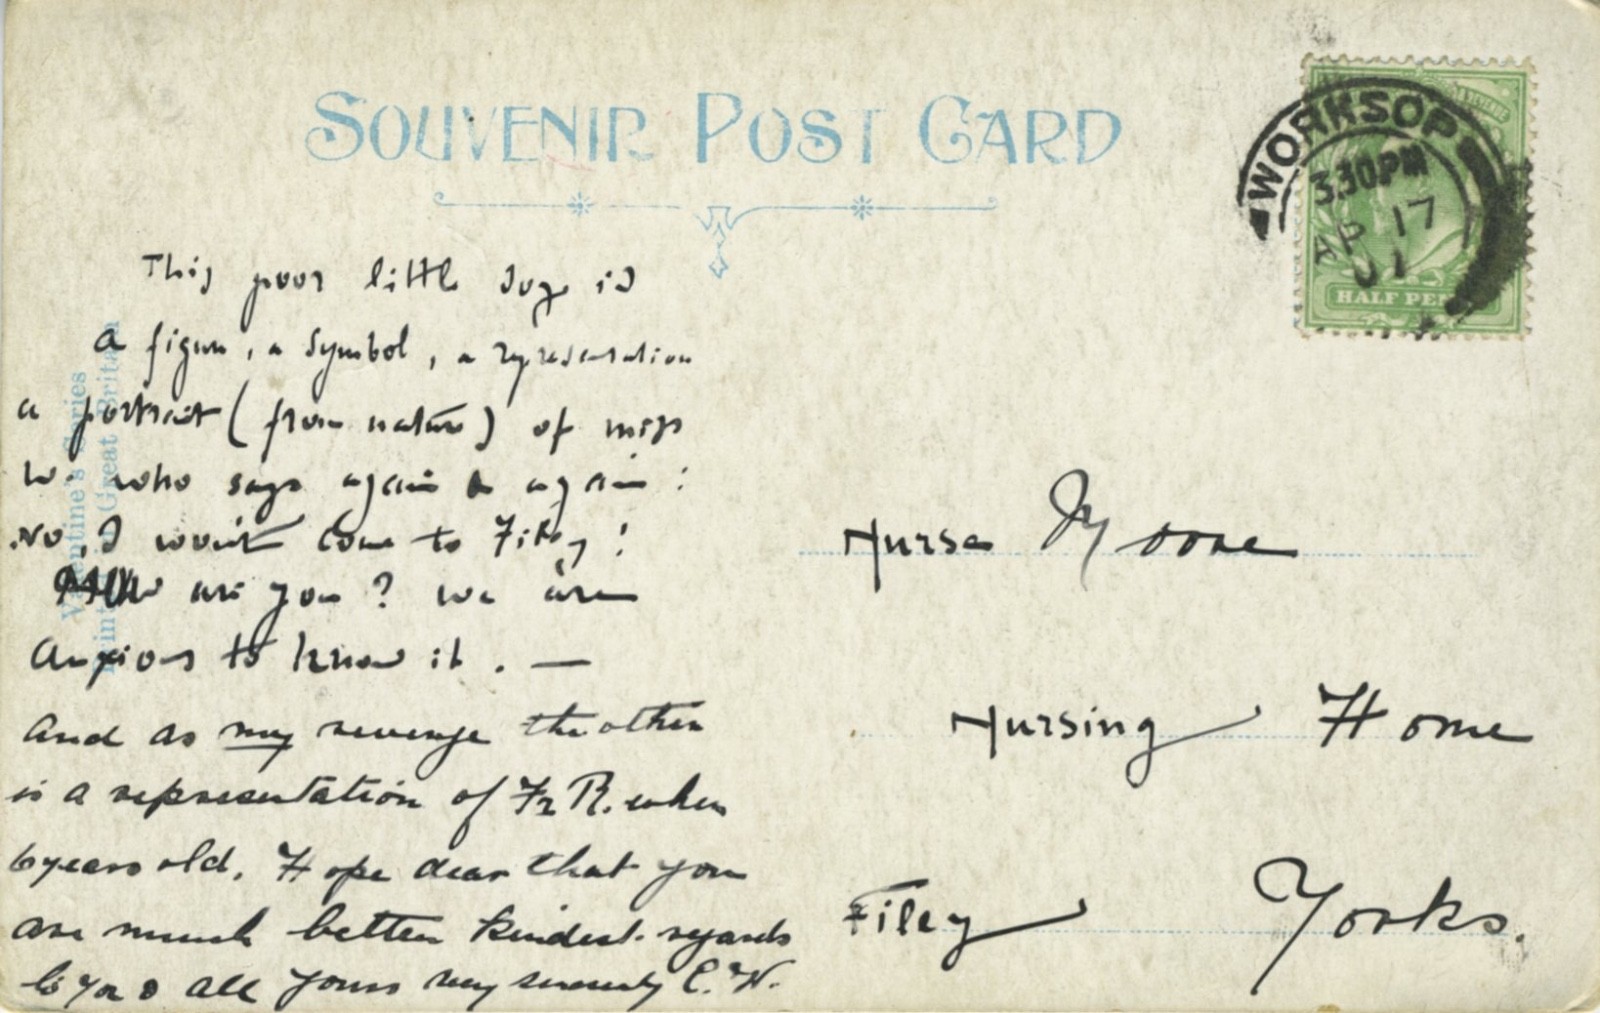 SOUVENIR POST CARD
WORKSOP
3.30PM
AP 17
HALF PEN
Valentine's Series
Great Britain
This poor little dog is
a figure, a symbol, a representation
a portrait (from nature) of miss
W. who says again & again :
No, I won't come to Filey!
How are you? we are
anxious to know it. —
And as my revenge the other
is a representation of Fr R. when
6 years old. Hope dear that you
are much better kindest regards
to you & all yours very sincerely C. W.
Nurse Moore
Nursing Home
Filey Yorks.